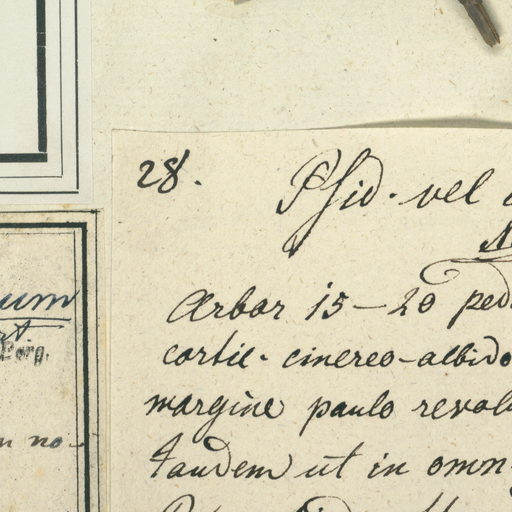 28.
Psid. vel
Arbor 15-20 ped
cortic. cinereo-albido
margine paulo revolu
tandem ut in omn
um
n no-